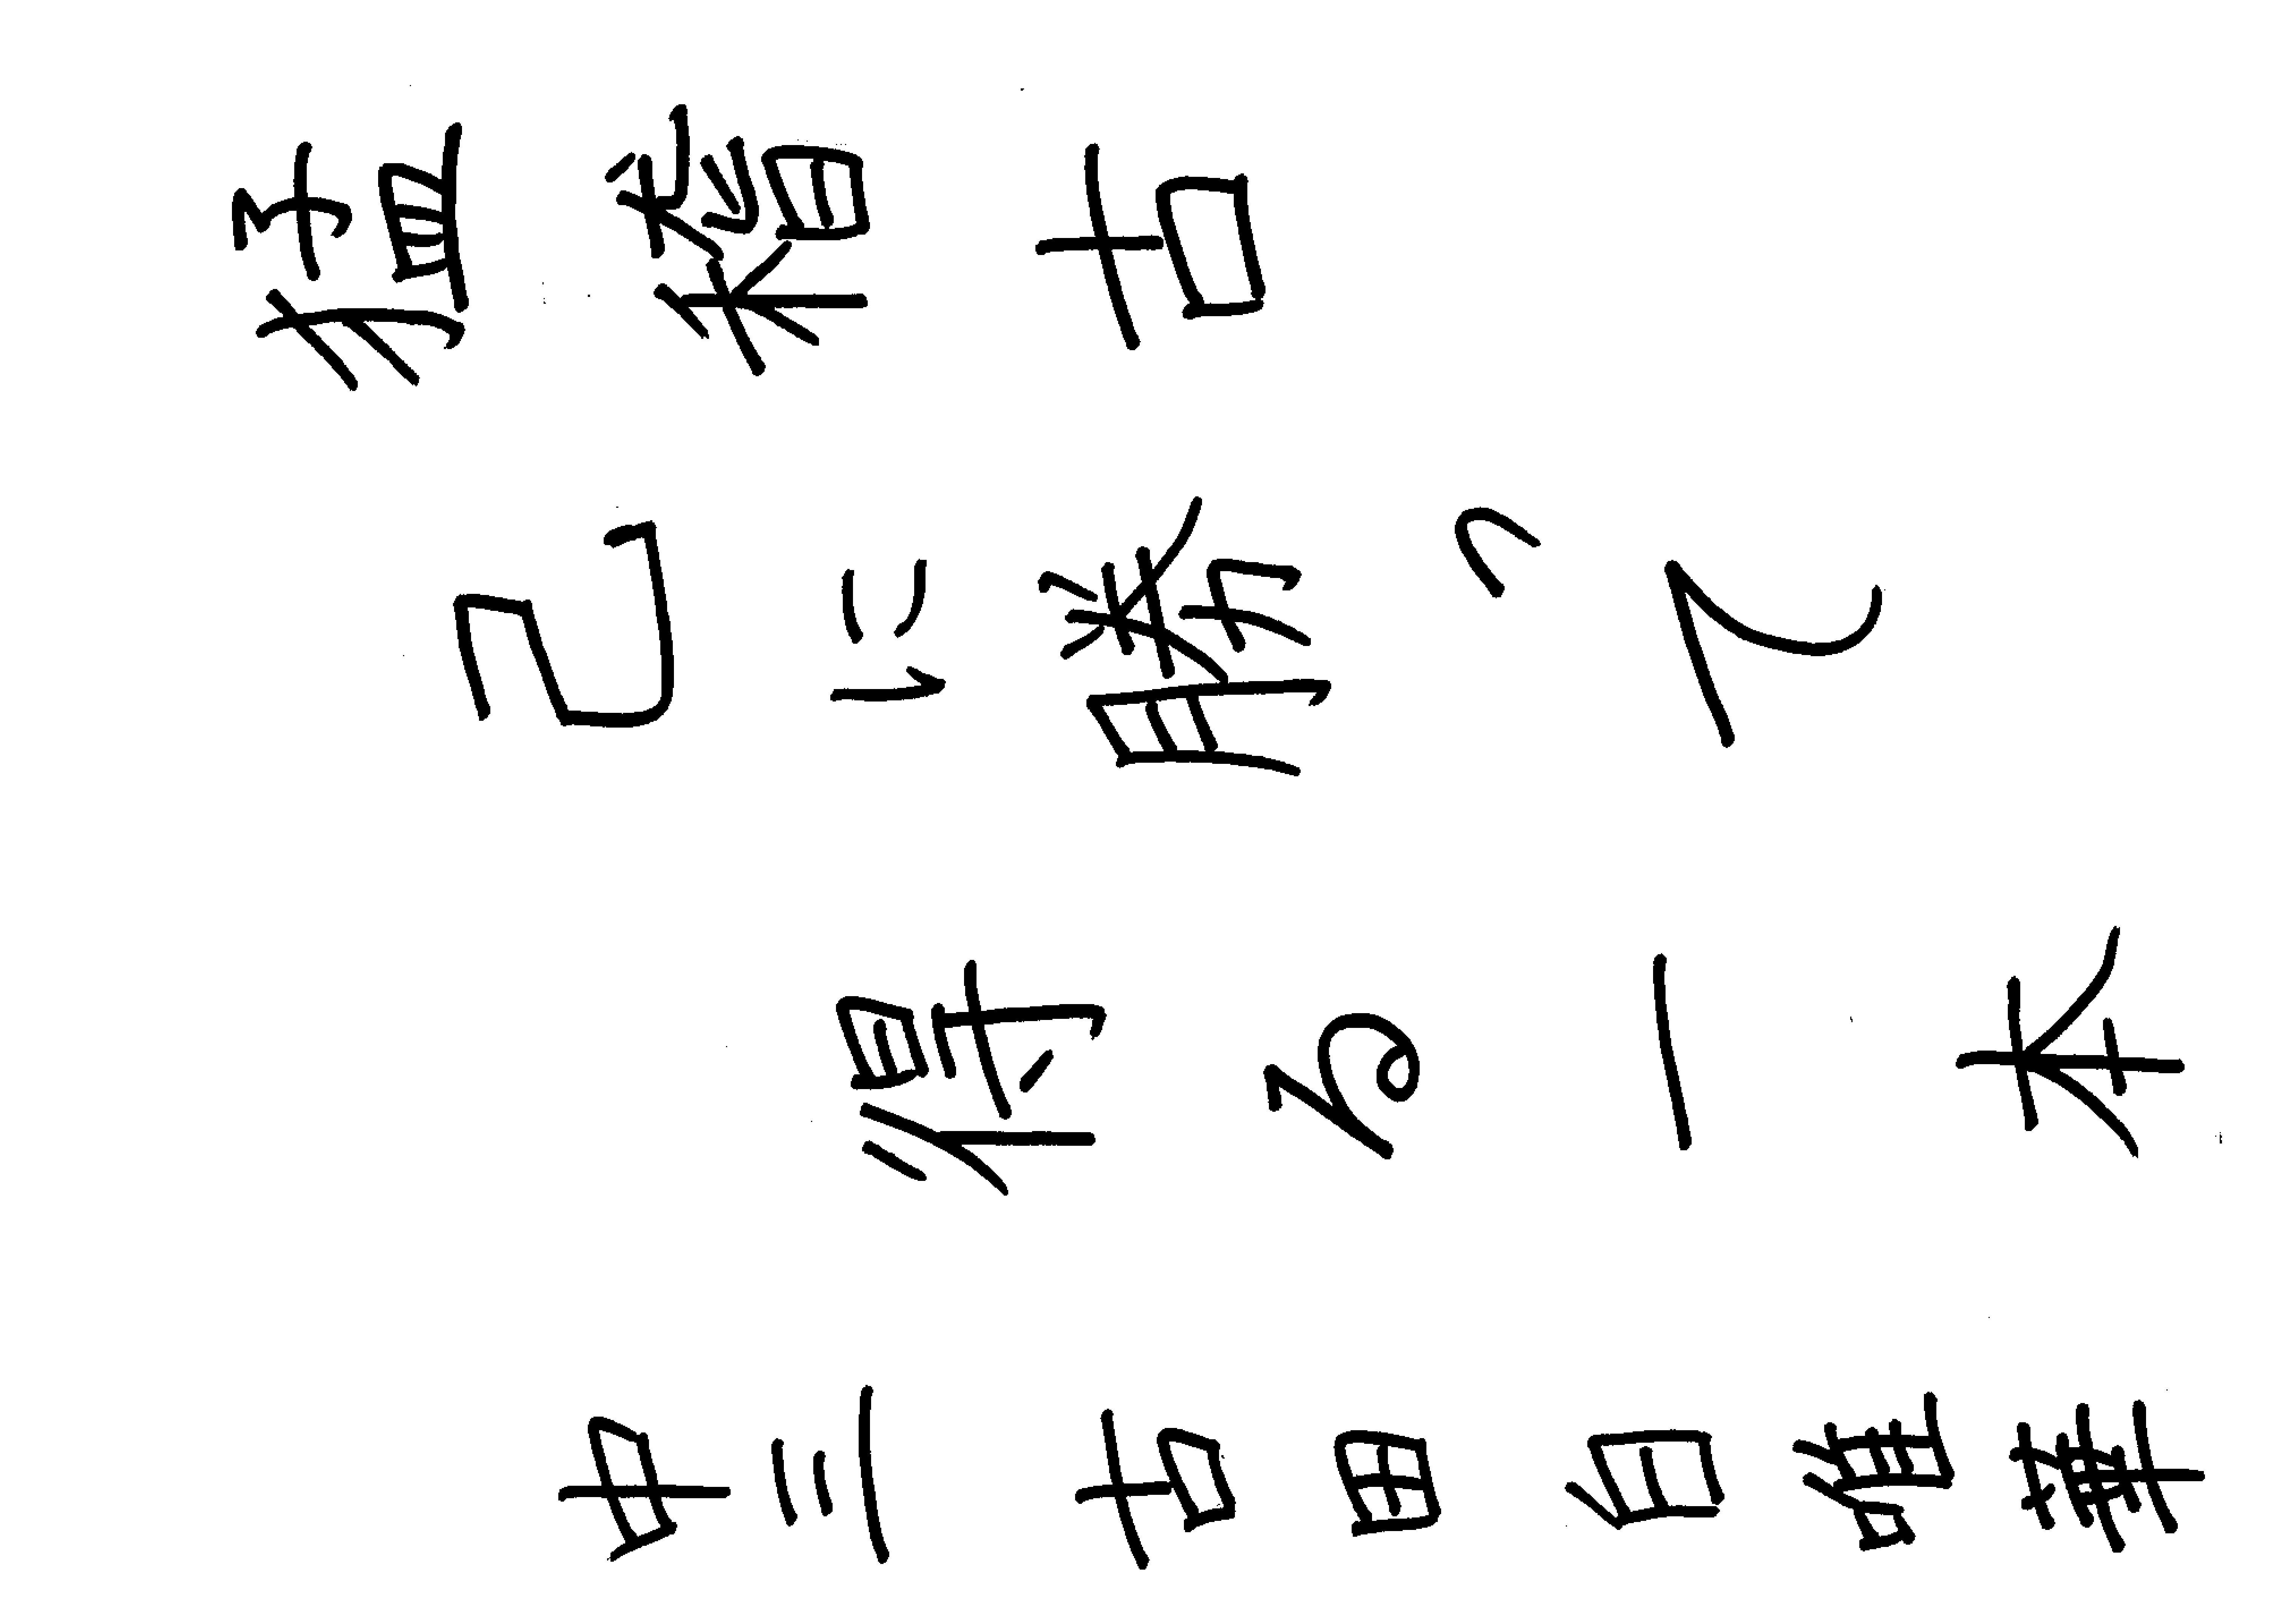 猛稽古
己に勝って
得る一本
中三 古田 白 華